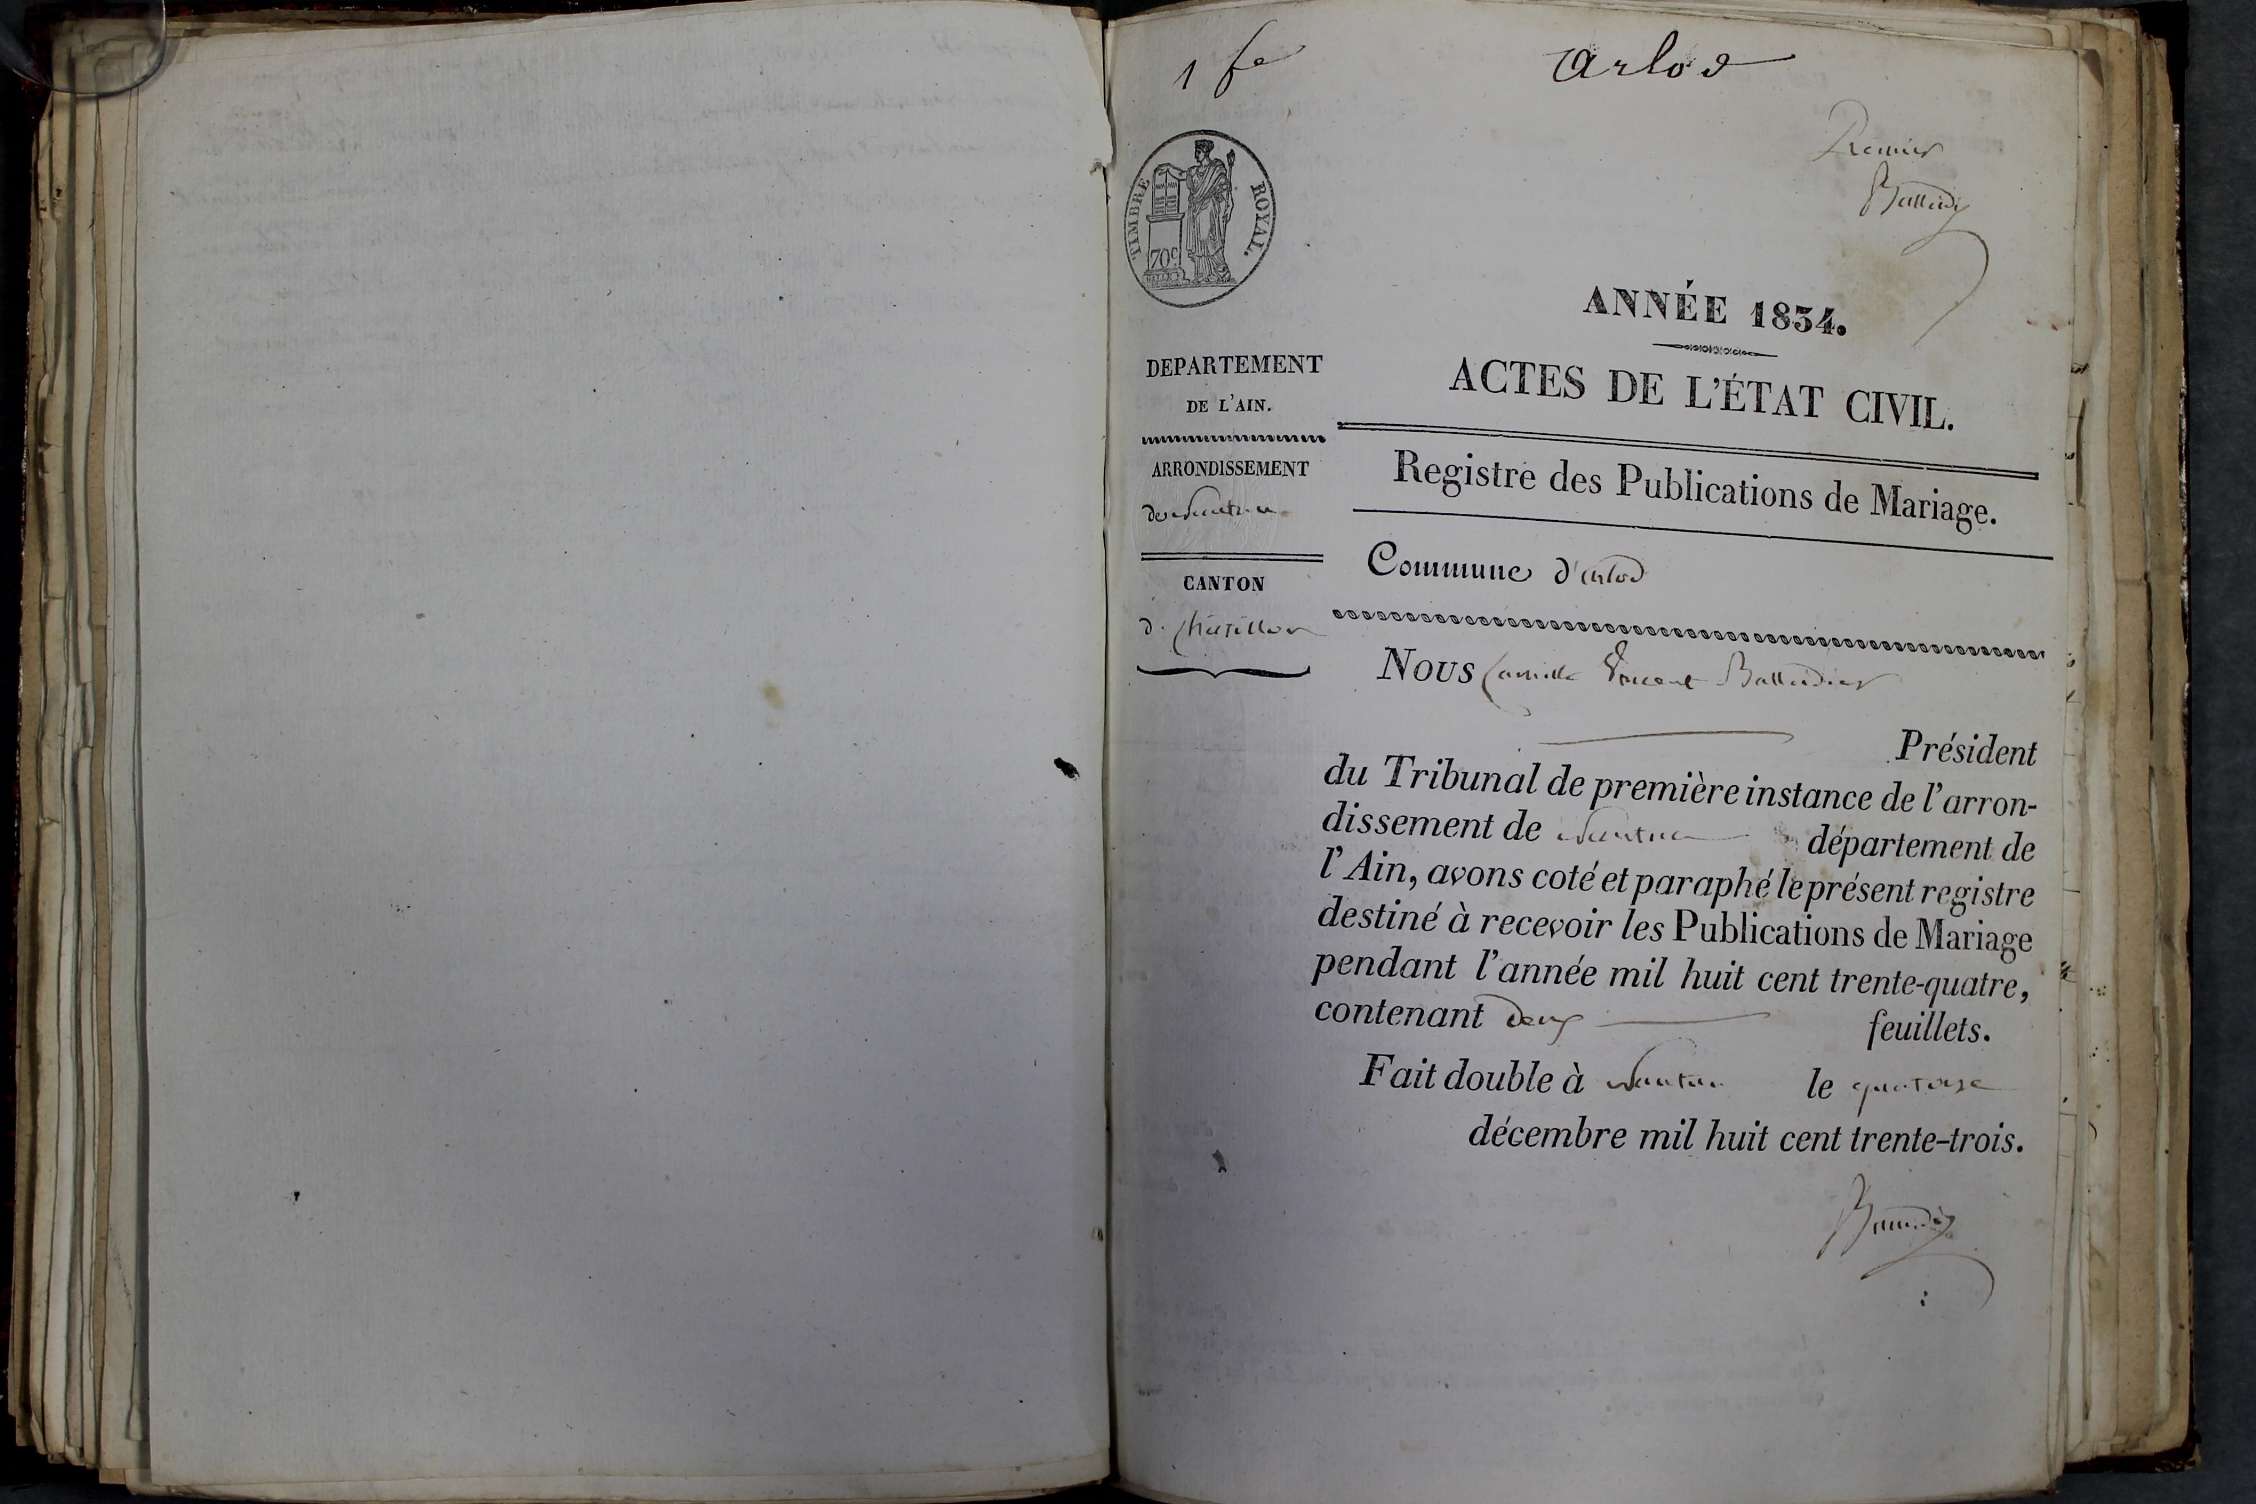 1 fe
Arlod
Premier
Balleidier
TIMBRE ROYAL.
70c
ANNÉE 1834.
DEPARTEMENT
DE L'AIN.
ACTES DE L'ÉTAT CIVIL.
ARRONDISSEMENT
de Nantua
Registre des Publications de Mariage.
Commune d'arlod
CANTON
d. Châtillon
Nous Camille Vincent Balleidier
Président
du Tribunal de première instance de l'arron-
dissement de Nantua département de
l'Ain, avons coté et paraphé le présent registre
destiné à recevoir les Publications de Mariage
pendant l'année mil huit cent trente-quatre,
contenant deux feuillets.
Fait double à Nantua le quatorze
décembre mil huit cent trente-trois.